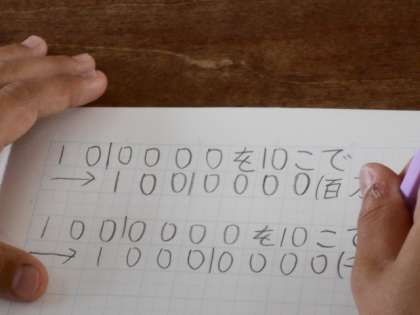 10|0000を10こで
→ 100|0000(百
100|0000を10こで
→ 1000|0000(